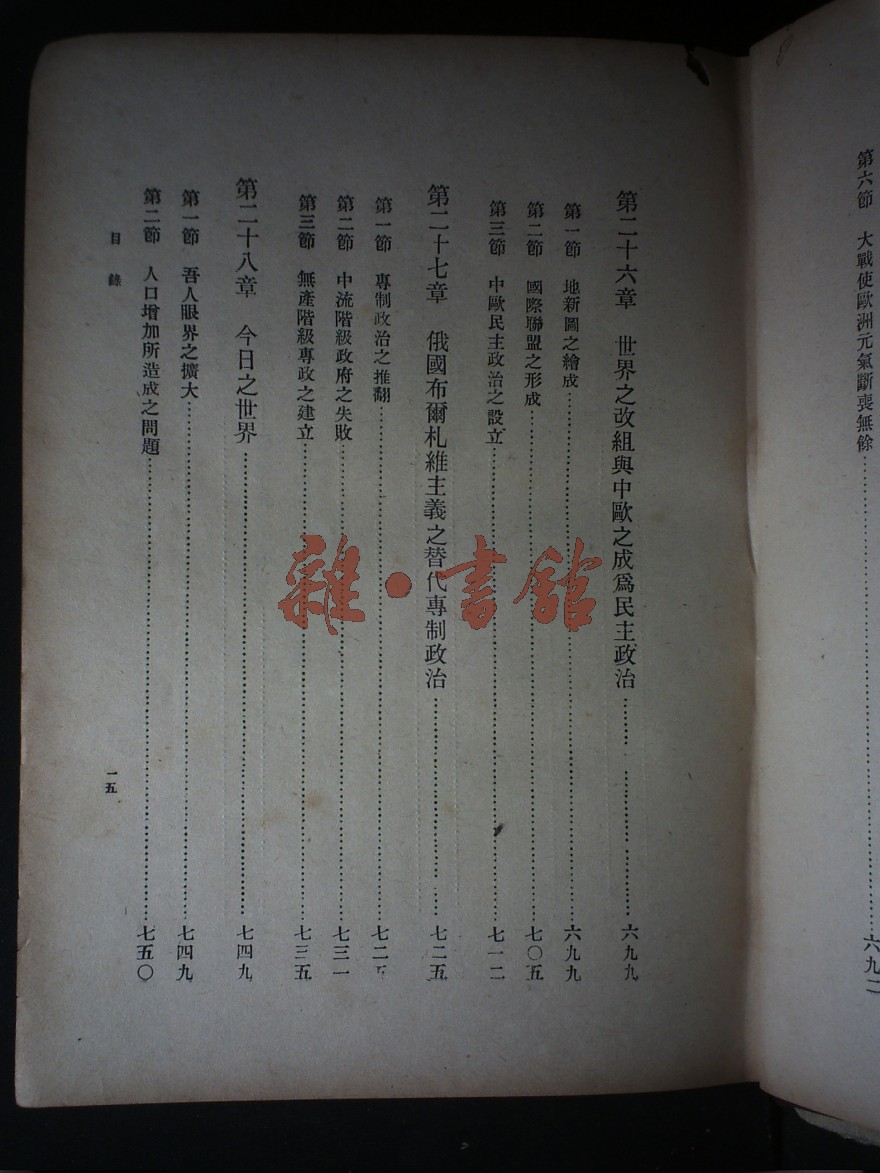 第六節 大戰使歐洲元氣斷喪無餘……六九二
第二十六章 世界之改組與中歐之成爲民主政治……六九九
第一節 地新圖之繪成……六九九
第二節 國際聯盟之形成……七〇五
第三節 中歐民主政治之設立……七一二
第二十七章 俄國布爾札維主義之替代專制政治……七二五
第一節 專制政治之推翻……七二五
第二節 中流階級政府之失敗……七三一
第三節 無產階級專政之建立……七三五
第二十八章 今日之世界……七四九
第一節 吾人眼界之擴大……七四九
第二節 人口增加所造成之問題……七五〇
目錄
一五
雜·書館